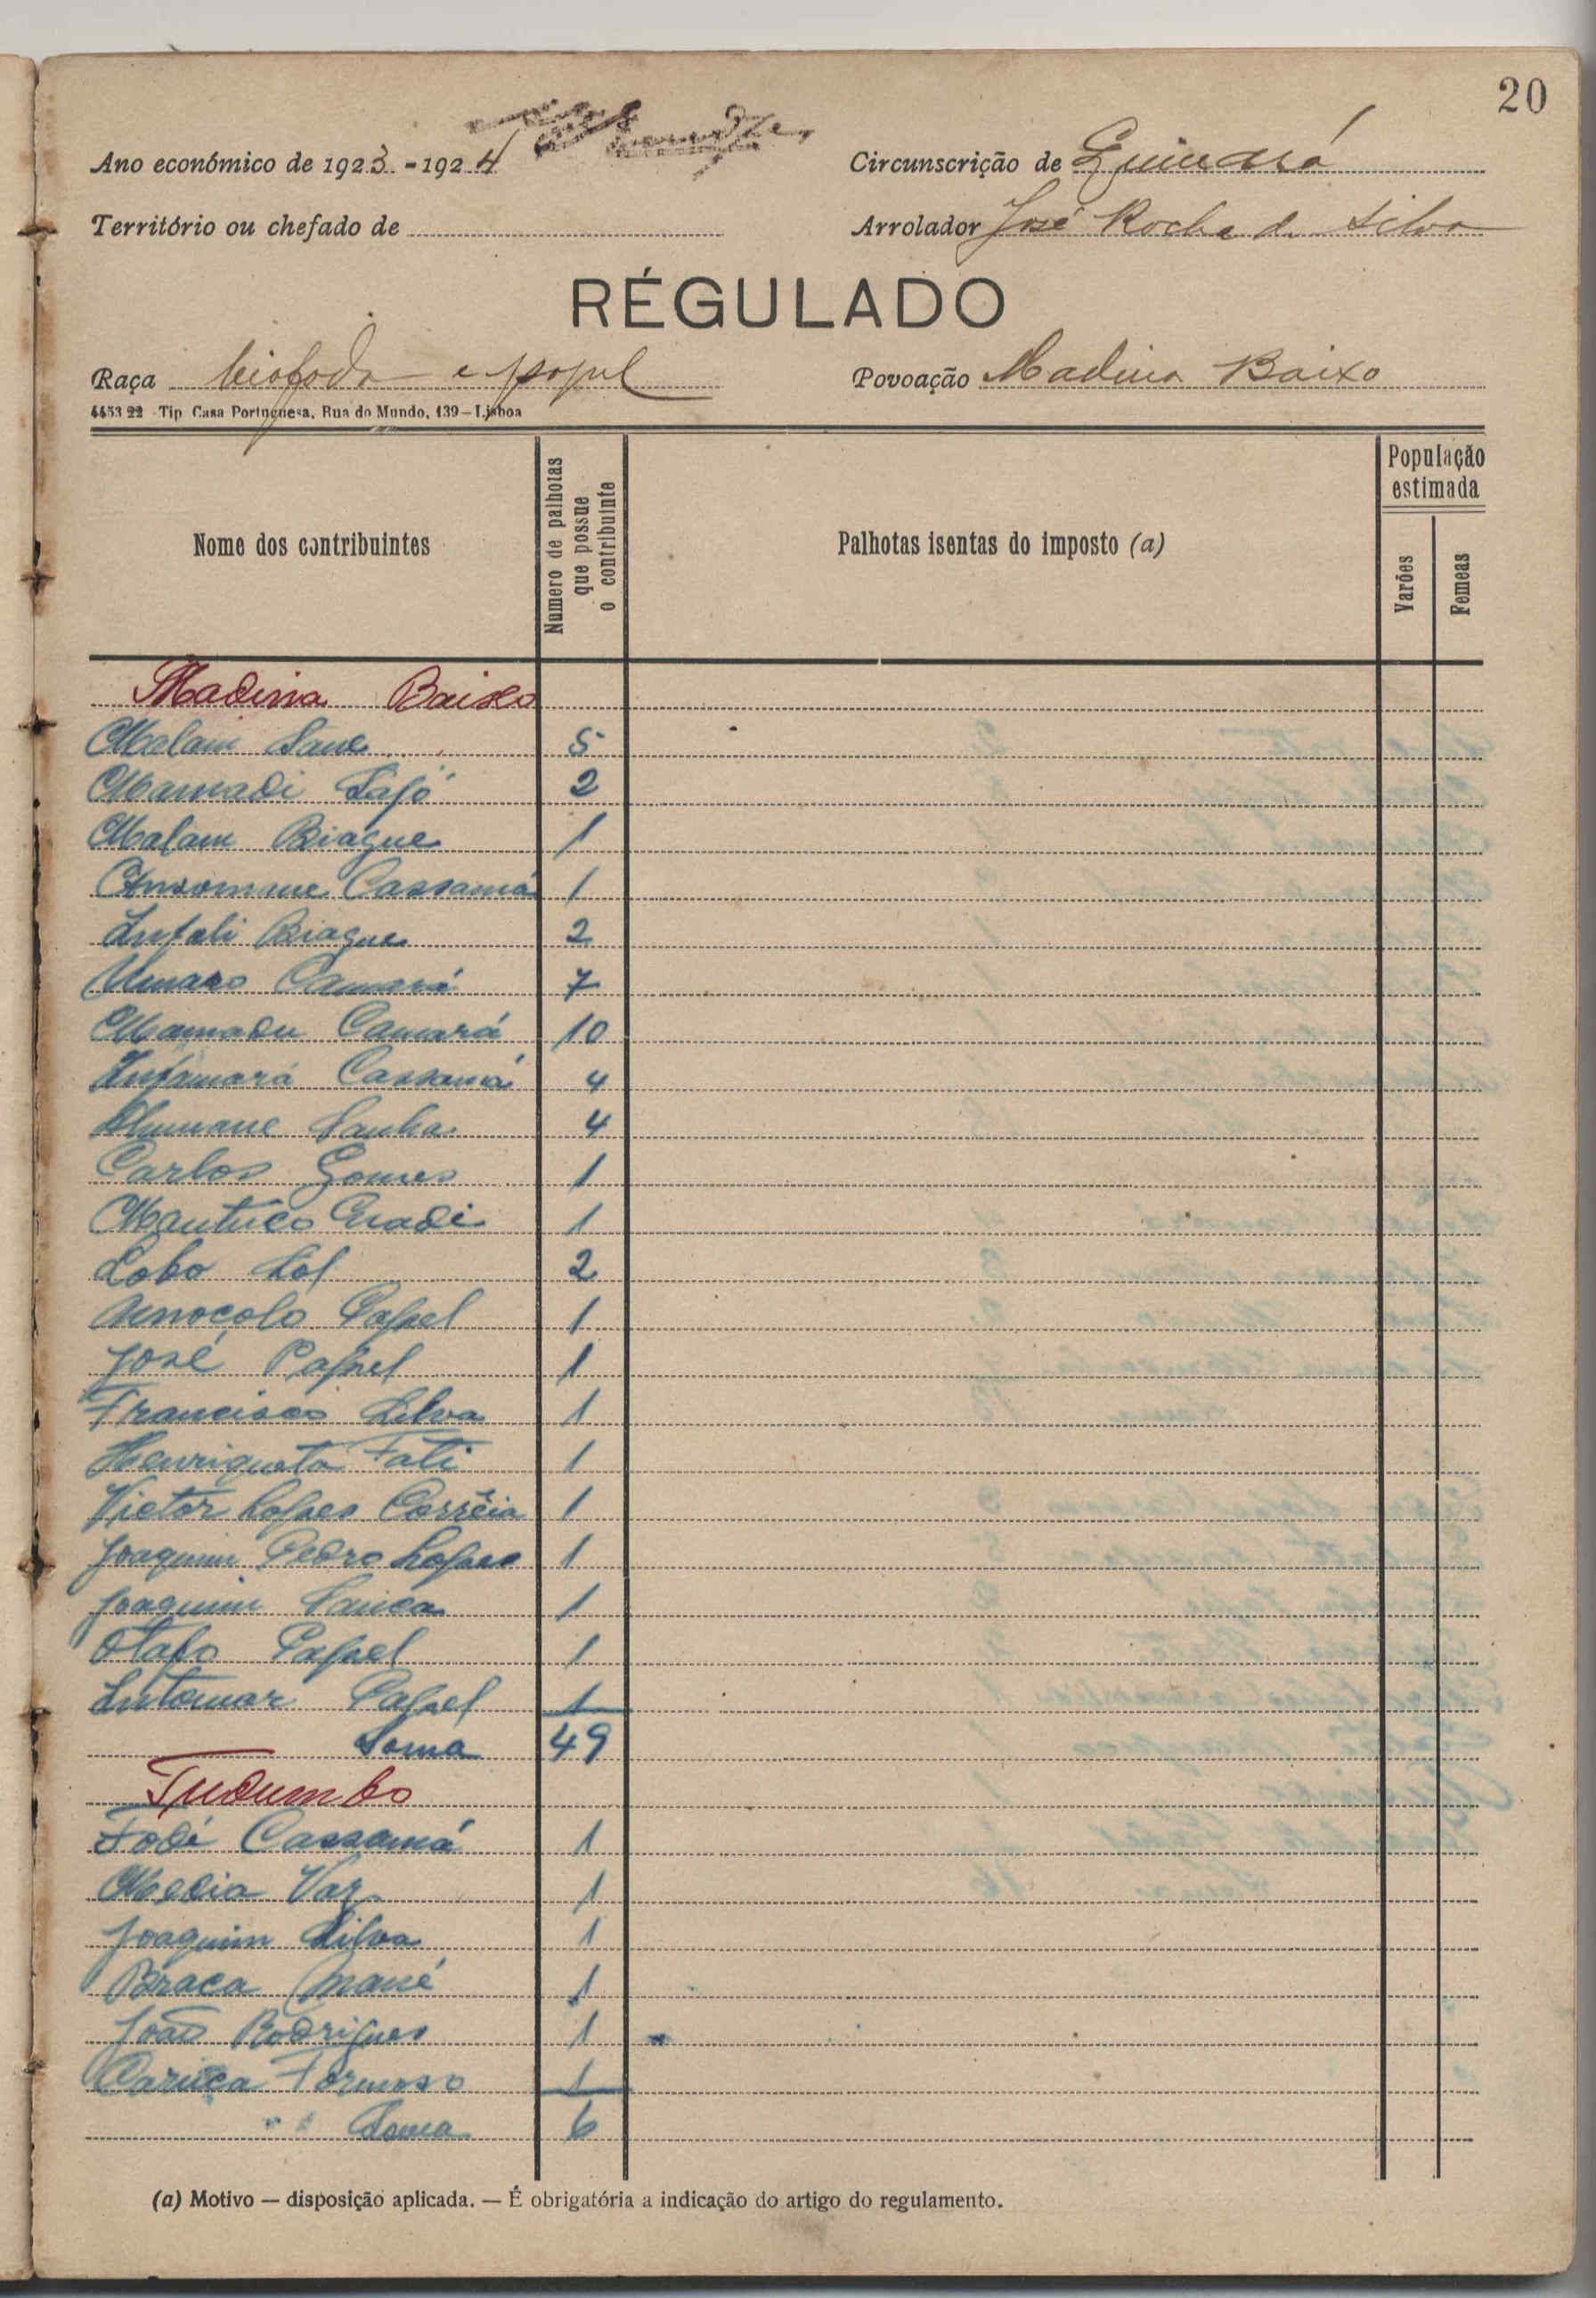 20
Ano económico de 1923-1924
Circunscrição de Quinará
Território ou chefado de
Arrolador José Rocha da Silva
RÉGULADO
Raça biafada e papel
Povoação Madina Baixo
4453 22 Tip Casa Portuguesa, Rua do Mundo, 139-Lisboa
Nome dos contribuintes
Numero de palhotas que possue o contribuinte
Palhotas isentas do imposto (a)
População estimada
Varões
Femeas
Madina Baixo
Malam Sane 5
Mamadi Safó 2
Malam Biague 1
Ansomane Cassamá 1
Infali Biague 2
Umaro Camará 7
Mamadu Camará 10
Infamará Cassamá 4
Sanha 4
Carlos Gomes 1
1
Lobo 2
Papel 1
José Papel 1
Francisco Silva 1
Henriqueta Fati 1
Victor Lopes Corrêia 1
Joaquim Pedro Lopes 1
Joaquim Sanca 1
Otapo Papel 1
Intomar Papel 1
Soma 49
Tudumbo
Fodé Cassamá 1
Vaz 1
Joaquim Silva 1
Braca Mané 1
João Rodrigues 1
Formoso 1
Soma 6
(a) Motivo — disposição aplicada. — É obrigatória a indicação do artigo do regulamento.